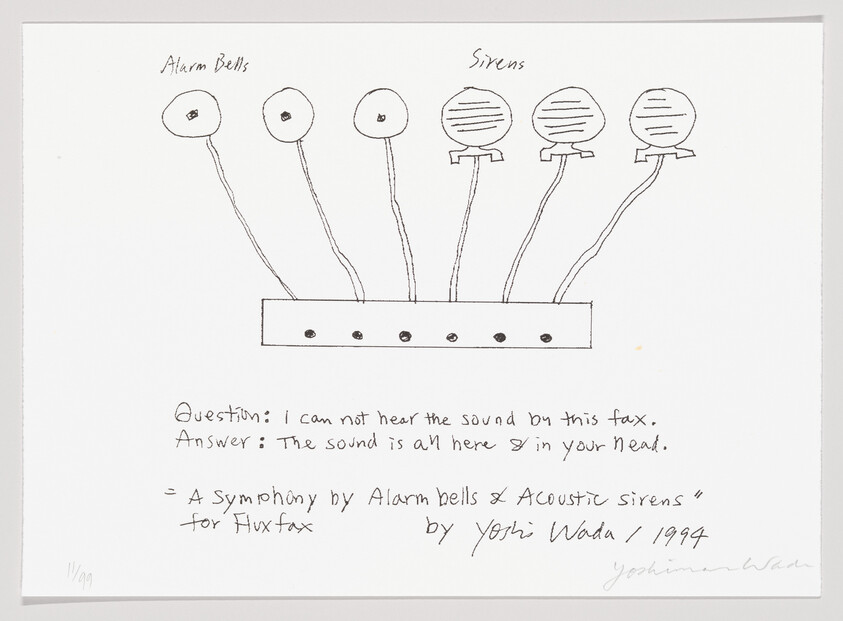 Alarm Bells
Sirens
Question: I can not hear the sound by this fax.
Answer: The sound is all here & in your head.
= A Symphony by Alarm bells & Acoustic sirens"
for Fluxfax by Yoshi Wada / 1994
11/99 Yoshimasa Wada